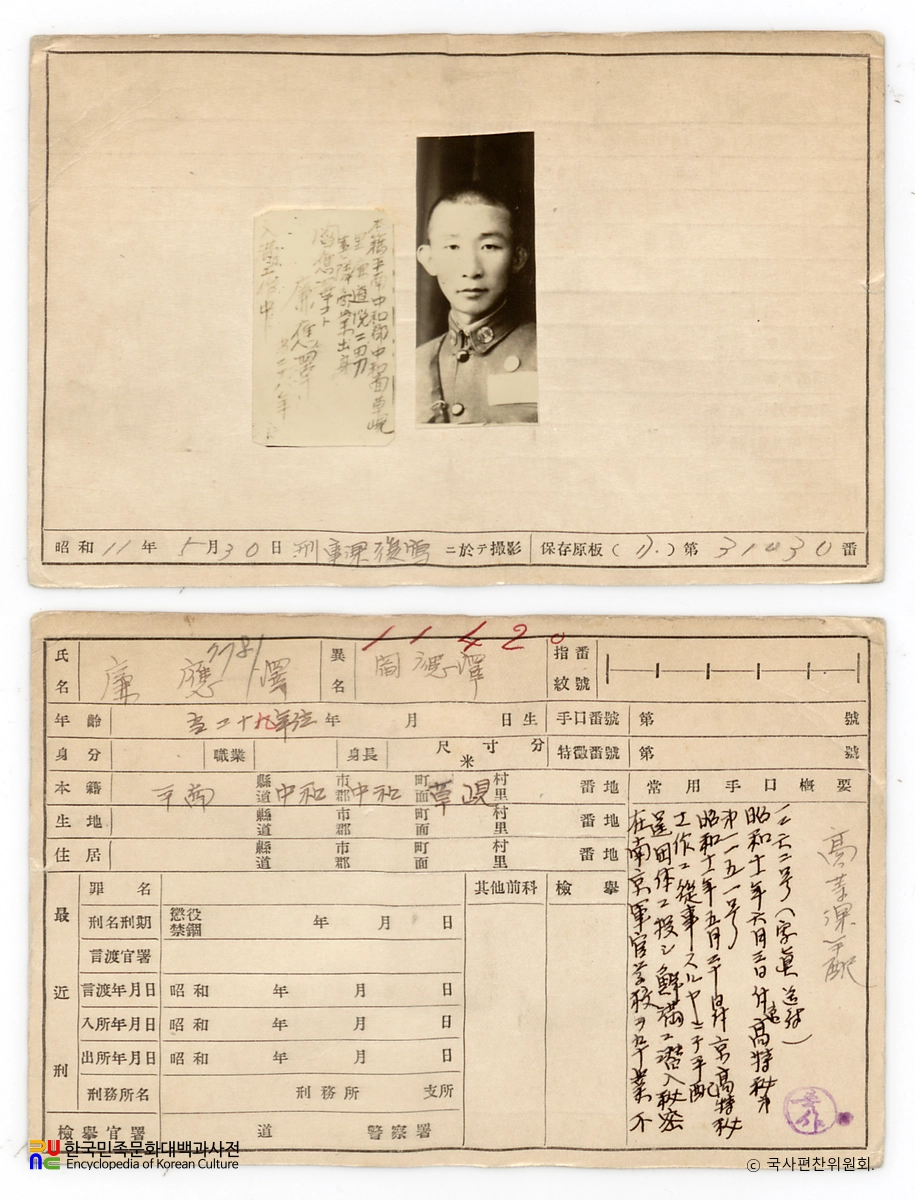 昭和11年5月30日刑事課複写ニ於テ撮影
保存原板( )第31430番
11420
氏名
廉應澤
異名
閻應澤
指紋番號
年齡
当二十九年位年
月
日生
手口番號
第
號
身分
職業
身長
尺寸分
米
特徵番號
第
號
本籍
平南
縣道
中和
市郡
中和
町面
草峴
村里
番地
常用手口槪要
生地
縣道
市郡
町面
村里
番地
住居
縣道
市郡
町面
村里
番地
最近刑
罪名
其他前科
檢擧
刑名刑期
懲役
禁錮
年
月
日
言渡官署
言渡年月日
昭和
年
月
日
入所年月日
昭和
年
月
日
出所年月日
昭和
年
月
日
刑務所名
刑務所
支所
檢擧官署
道
警察署
在南京軍官学校ヲ卒業不
逞団体ニ投シ鮮満ニ潜入秘密
工作ニ從事スルヤニテ手配
昭和十一年五月二十日付京高特秘
第一一五一号
昭和十一年六月三日付京高特秘第
一二六二号(写真送付)
한국민족문화대백과사전
Encyclopedia of Korean Culture
© 국사편찬위원회.